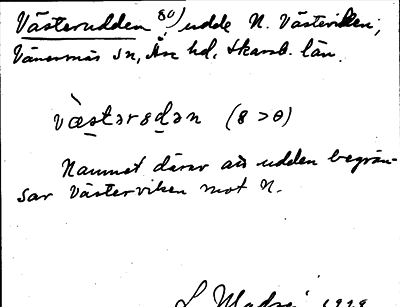 Västerudden 80) udde N. Västerviken;
Vänersnäs sn, Åse hd, Skarab. län.
væstərɞdən (ɞ > ɵ)
Namnet därav att udden begrän-
sar Västerviken mot N.